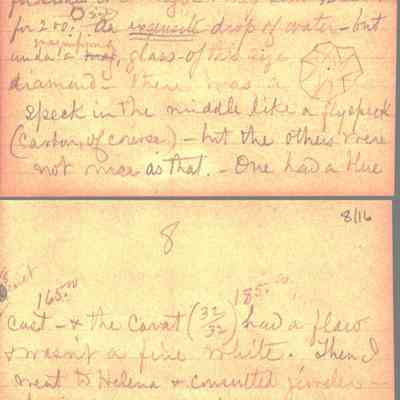 for 200. An exquisite drop of water - but
under a magnifying glass - of this size
diamond - there was a
speck in the middle like a flyspeck
(Carbon, of course.) - but the others were
not nice as that. - One had a blue
8/16
8
165.00 185.00
cast - & the Carat (32/32) had a flaw
& wasn't a fine white. Then I
went to Helena & consulted jeweler -